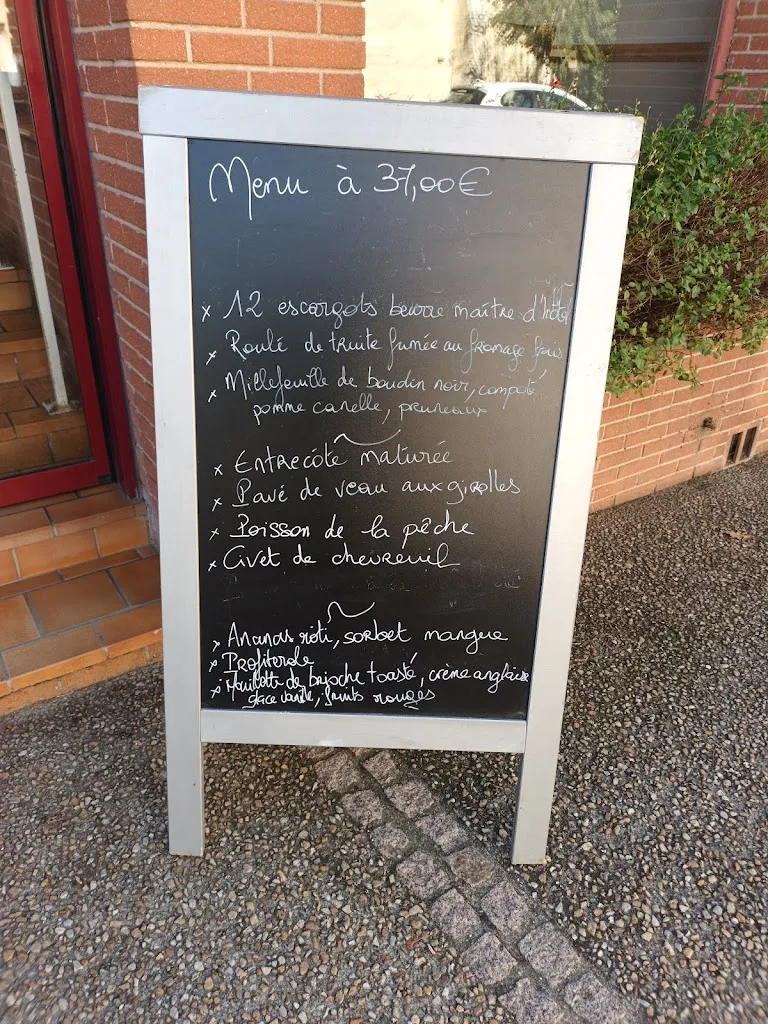 Menu à 37,00€
x 12 escargots beurre maître d'hôtel
x Roulé de truite fumée au fromage frais
x Millefeuille de boudin noir, compoté,
pomme canelle, pruneaux
x Entrecôte maturée
x Pavé de veau aux girolles
x Poisson de la pêche
x Civet de chevreuil
x Ananas rôti, sorbet mangue
x Profiterole
x Mouillette de brioche toasté, crème anglaise
glace vanille, fruits rouges